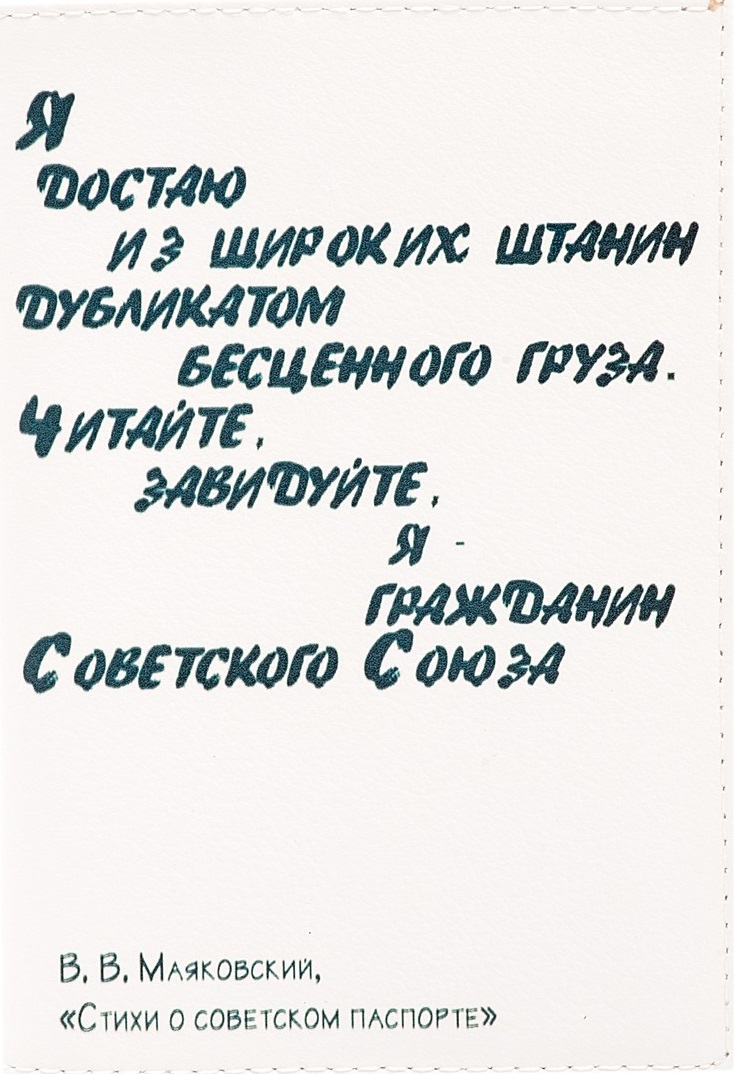 Я
достаю
из широких штанин
дубликатом
бесценного груза.
Читайте,
завидуйте,
я -
гражданин
Советского Союза
В. В. Маяковский,
«Стихи о советском паспорте»